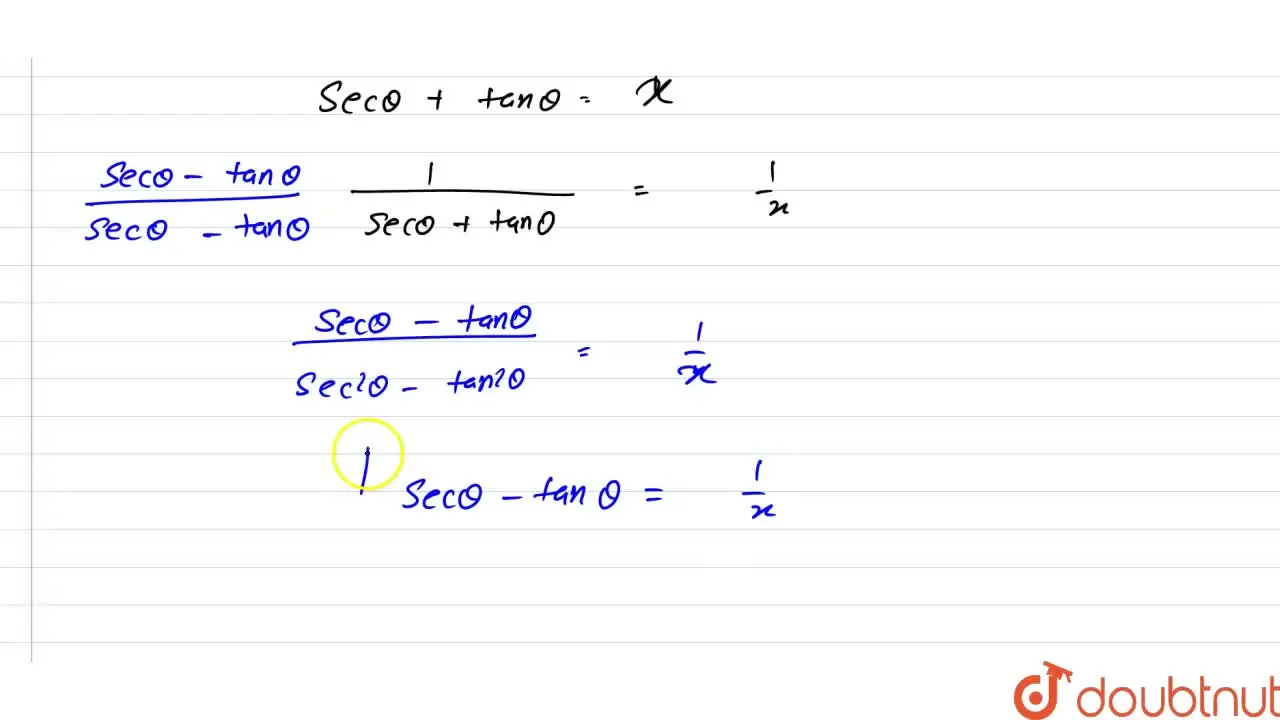 Secθ + tanθ = x
secθ - tanθ / secθ - tanθ 1 / secθ + tanθ = 1/x
secθ - tanθ / sec²θ - tan²θ = 1/x
secθ - tanθ = 1/x
doubtnut